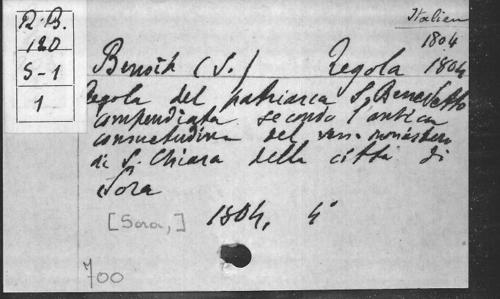 R. B.
120
S-1
1
Italien
1804
Benoit (S.) Regola 1804
Regola del patriarca S. Benedetto
compendiata secondo l'antica
consuetudine del ven. monastero
di S. Chiara della città di
Sora
[Sora,] 1804, 4°
700